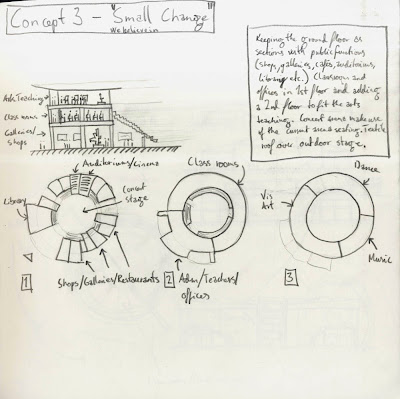 Concept 3 - "Small Change"
We believe in
Keeping the ground floor as
sections with public functions
(shops, galleries, cafes, auditoriums,
library etc.) Classrooms and
offices in 1st floor and adding
a 2nd floor to fit the arts
teaching. Concert arena make use
of the current arena seating. Textile
roof over outdoor stage.
Arts Teaching
Class rooms
Galleries/
shops
Auditoriums/Cinema
Library
Concert
stage
Shops/Galleries/Restaurants
1
Class rooms
2
Adm/Teachers/
offices
Dance
Vis
Art
Music
3